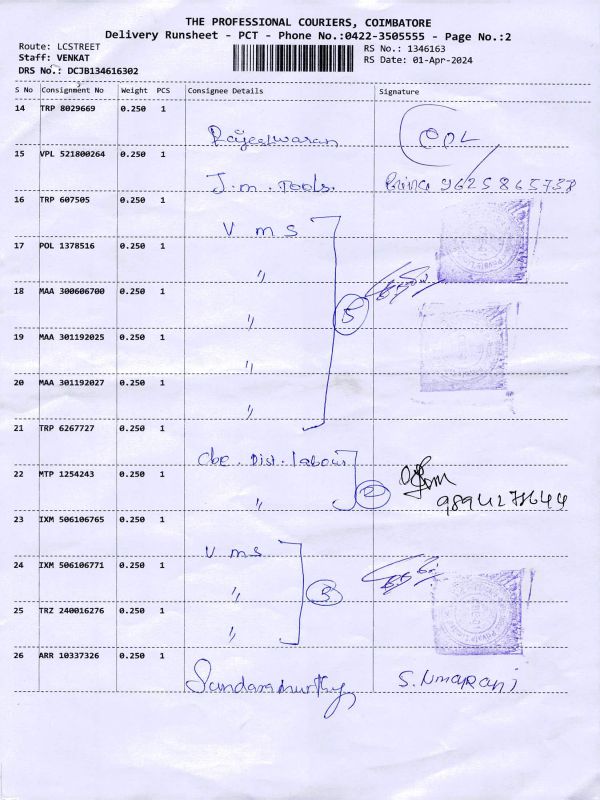 THE PROFESSIONAL COURIERS, COIMBATORE
Delivery Runsheet - PCT - Phone No.:0422-3505555 - Page No.:2
Route: LCSTREET
Staff: VENKAT
DRS No.: DCJB134616302
RS No.: 1346163
RS Date: 01-Apr-2024
S No Consignment No Weight PCS Consignee Details Signature
14 TRP 8029669 0.250 1
Rajeeswaran COL
15 VPL 521800264 0.250 1
J.m. Tools. 9625865738
16 TRP 607505 0.250 1
V m s
17 POL 1378516 0.250 1
"
18 MAA 300606700 0.250 1
" 5
19 MAA 301192025 0.250 1
"
20 MAA 301192027 0.250 1
"
21 TRP 6267727 0.250 1
Cbe. Dist. labour
22 MTP 1254243 0.250 1
" 2 9894278644
23 IXM 506106765 0.250 1
V m s
24 IXM 506106771 0.250 1
" 3
25 TRZ 240016276 0.250 1
"
26 ARR 10337326 0.250 1
Sundaramurthy S. Umarani